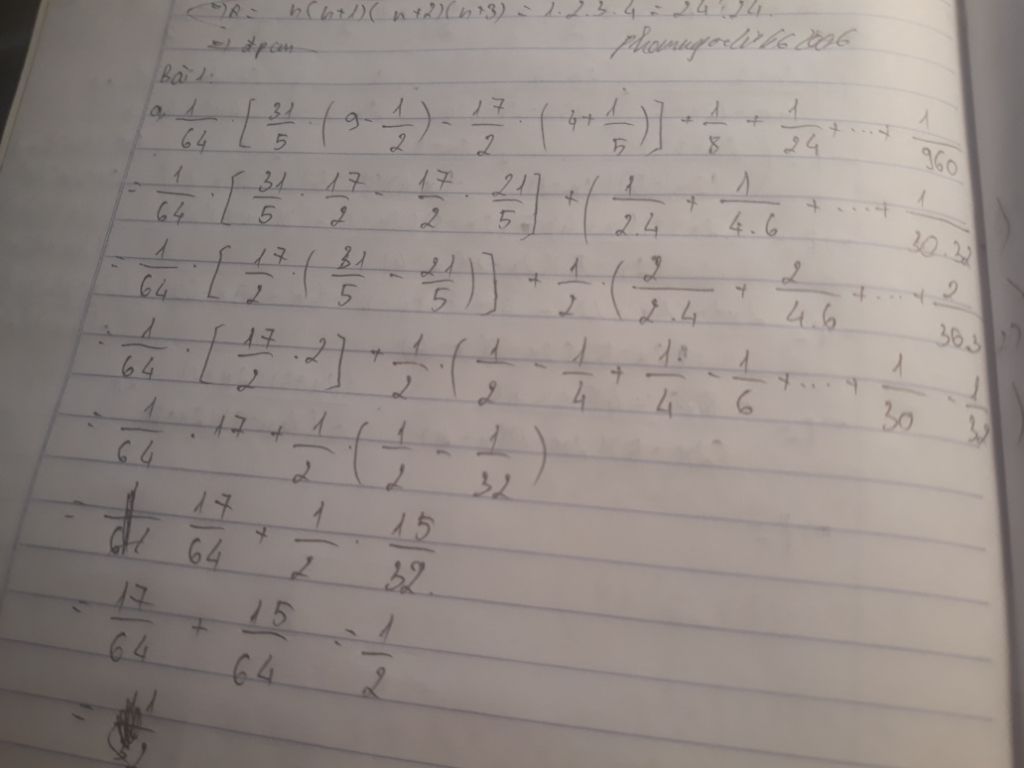 ⇒ B = n(n+1)(n+2)(n+3) = 1.2.3.4 = 24 ⋮ 24.
⇒ đpcm
Bài 1:
a, 1/64 · [31/5 · (9 - 1/2) - 17/2 · (4 + 1/5)] + 1/8 + 1/24 + ... + 1/960
= 1/64 · [31/5 · 17/2 - 17/2 · 21/5] + (1/2.4 + 1/4.6 + ... + 1/30.32)
= 1/64 · [17/2 · (31/5 - 21/5)] + 1/2 · (2/2.4 + 2/4.6 + ... + 2/30.3
= 1/64 · [17/2 · 2] + 1/2 · (1/2 - 1/4 + 1/4 - 1/6 + ... + 1/30 - 1/32)
= 1/64 · 17 + 1/2 · (1/2 - 1/32)
= 17/64 + 1/2 · 15/32.
= 17/64 + 15/64 = 1/2
=